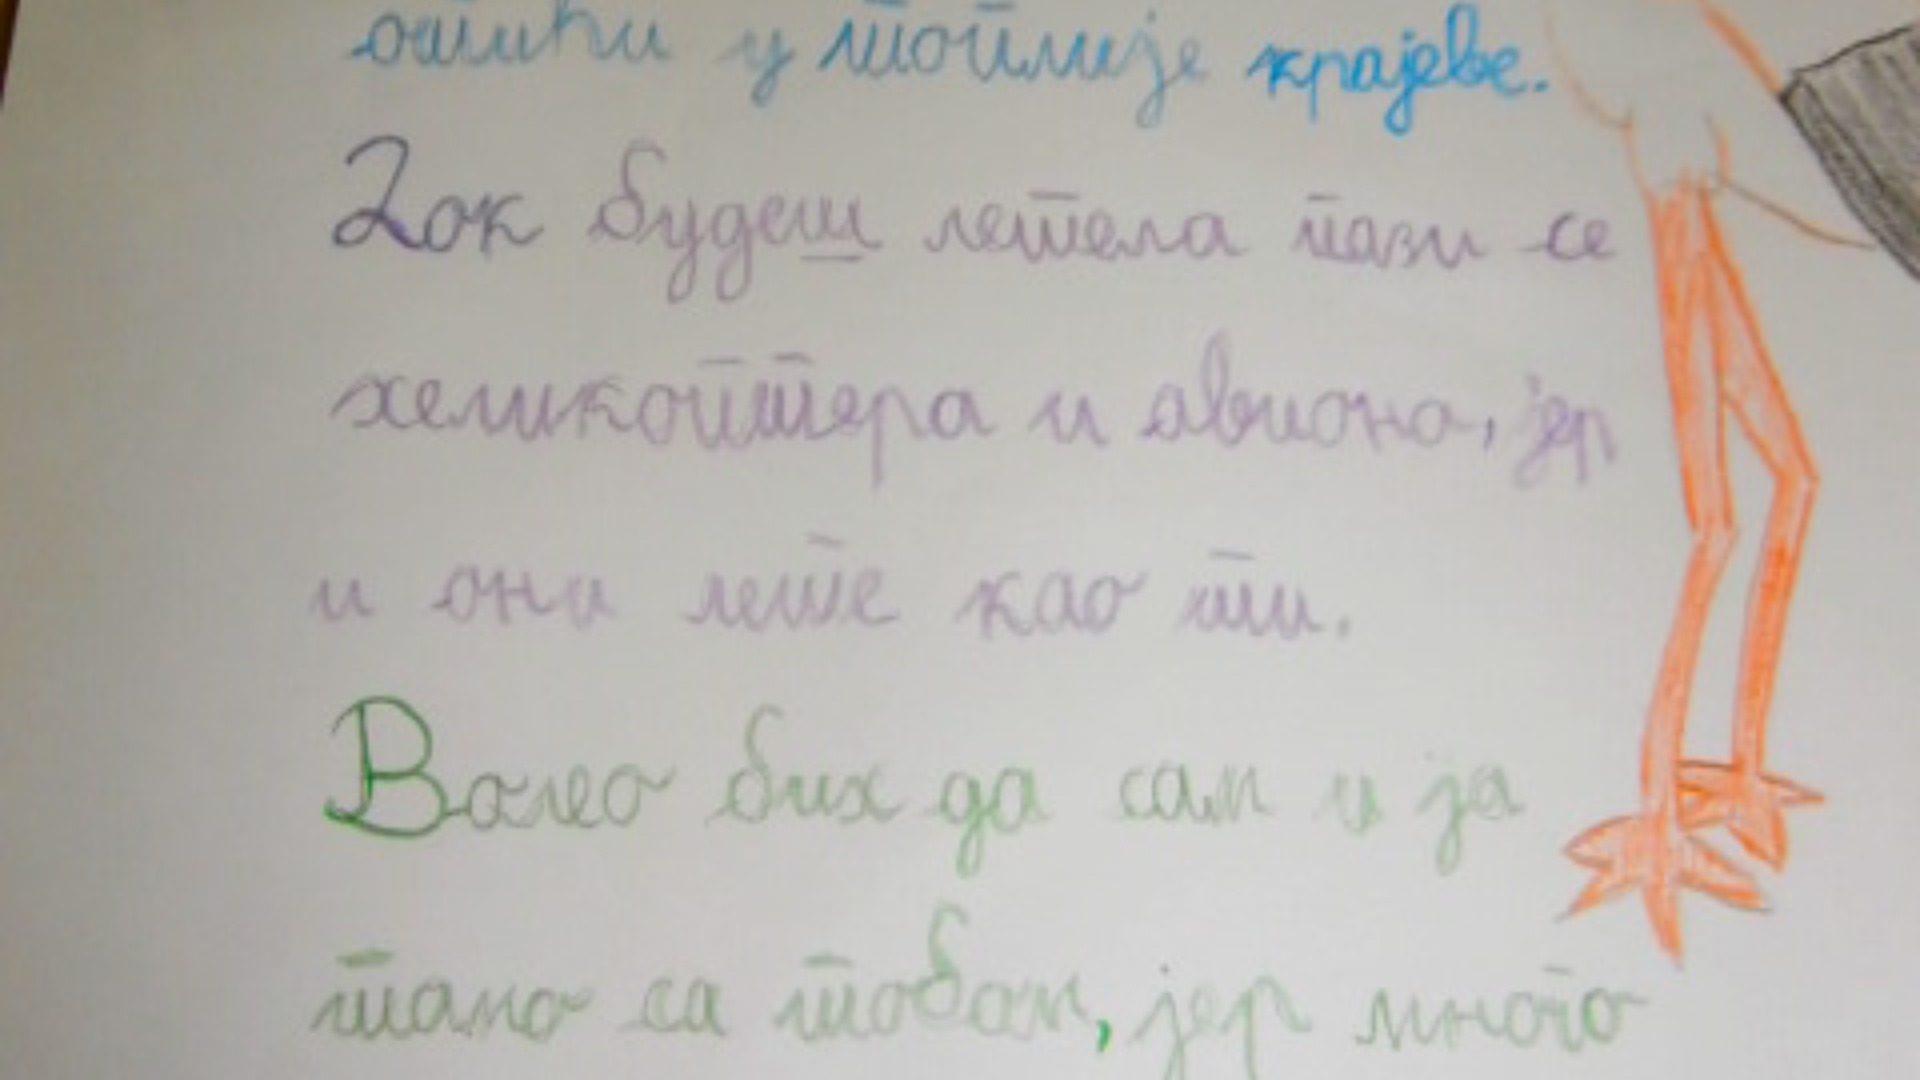 отићи у топлије крајеве.
Док будеш летела пази се
хеликоптера и авиона, јер
и они лете као ти.
Волео бих да сам и ја
тамо са тобом, јер много